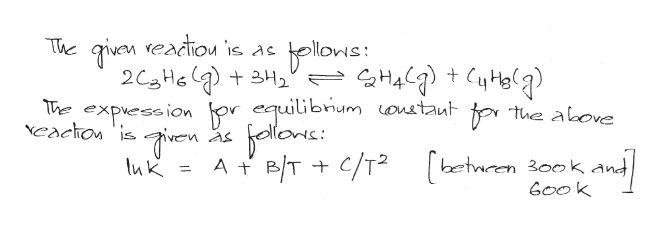 The given reaction is as follows:
2C₃H₆(g) + 3H₂ ⇌ C₂H₄(g) + C₄H₈(g)
The expression for equilibrium constant for the above
reaction is given as follows:
ln K = A + B/T + C/T² [between 300K and
600K]